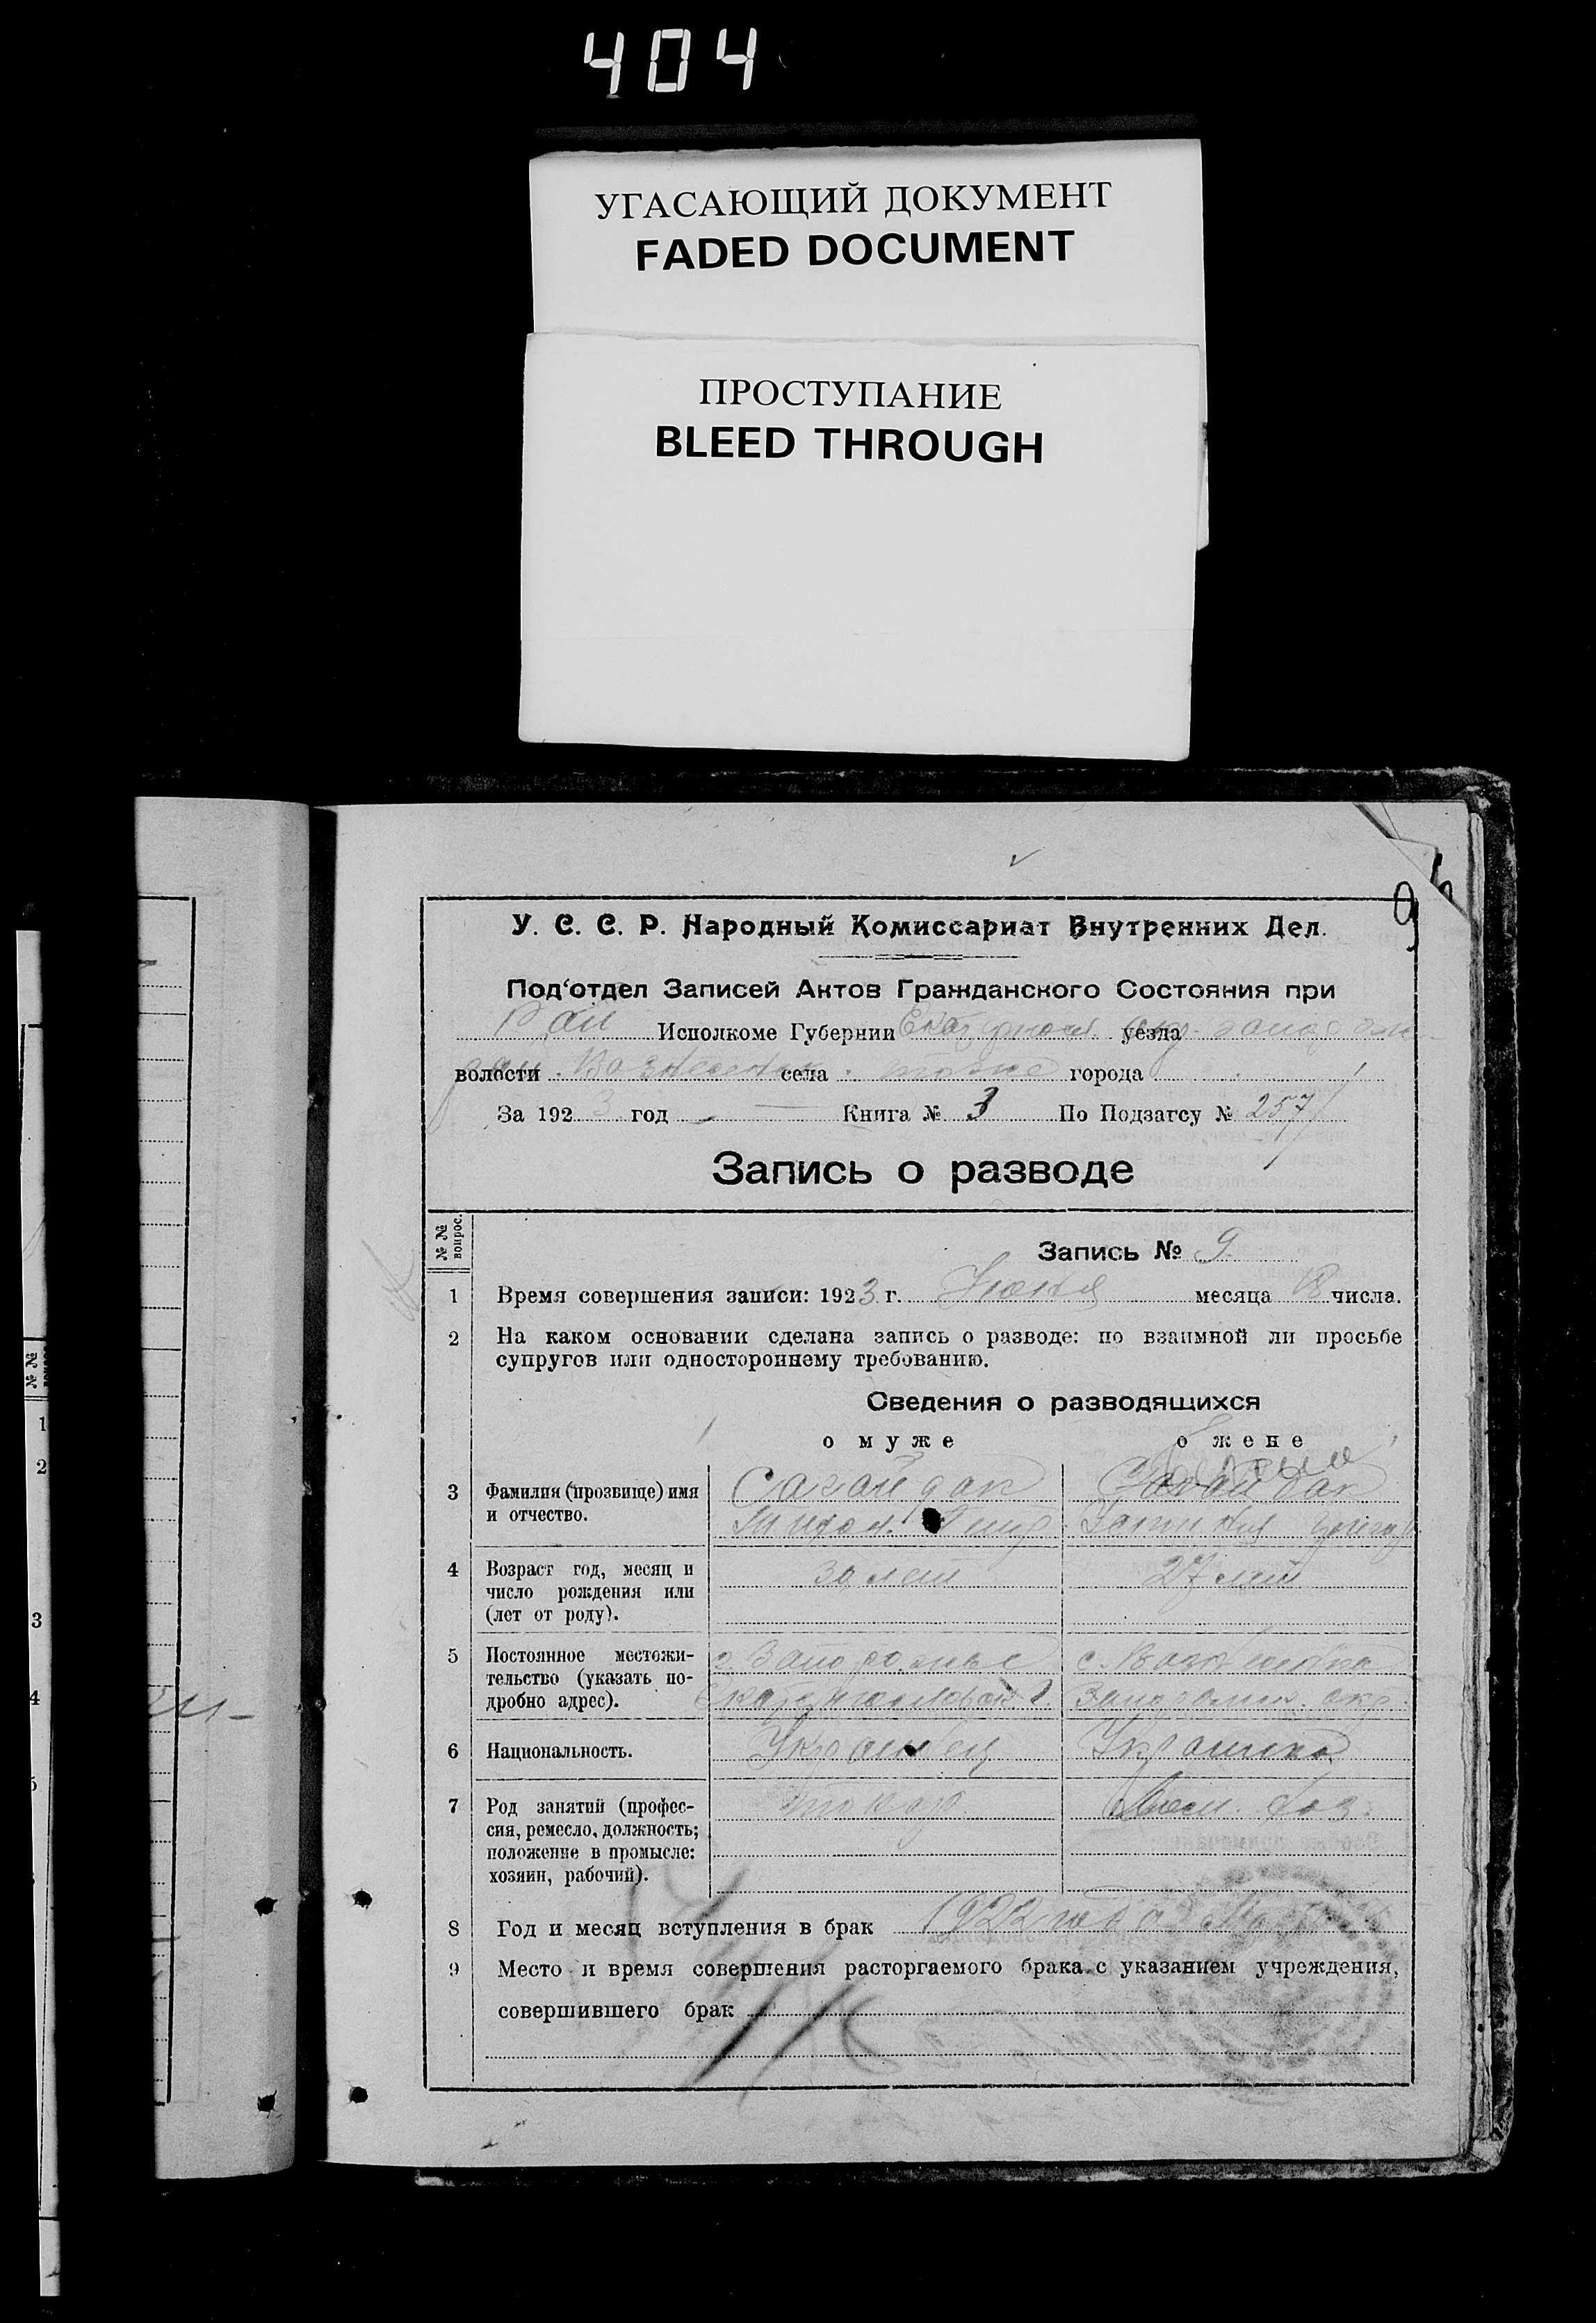 404
УГАСАЮЩИЙ ДОКУМЕНТ
FADED DOCUMENT
ПРОСТУПАНИЕ
BLEED THROUGH
9
У. С. С. Р. Народный Комиссариат Внутренних Дел.
Под'отдел Записей Актов Гражданского Состояния при
Рай Исполкоме Губернии уезда
волости села тоже города
За 1923 год Книга № 3 По Подзагсу № 257
Запись о разводе
№ № вопрос.
Запись № 9
1 Время совершения записи: 1923 г. Июня месяца 18 числа.
2 На каком основании сделана запись о разводе: по взаимной ли просьбе
супругов или одностороннему требованию.
Сведения о разводящихся
о муже о жене
3 Фамилия (прозвище) имя Сагайдак Сагайдак
и отчество.
4 Возраст год, месяц и 30 лет 27 лет
число рождения или
(лет от роду).
5 Постоянное местожи- г. Запорожье
тельство (указать по-
дробно адрес). Запорожск. окр.
6 Национальность. Украинец Украинка
7 Род занятий (профес- токар
сия, ремесло, должность;
положение в промысле:
хозяин, рабочий).
8 Год и месяц вступления в брак 1922 года
9 Место и время совершения расторгаемого брака с указанием учреждения,
совершившего брак